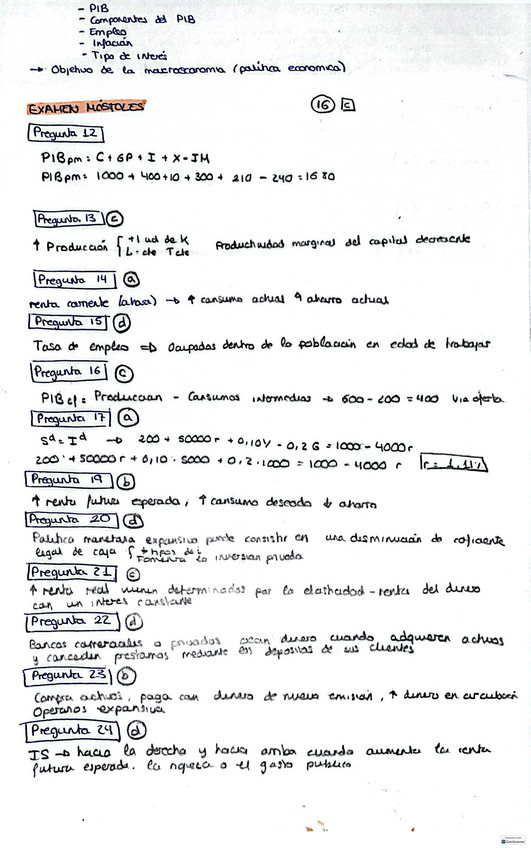 - PIB
- Componentes del PIB
- Empleo
- Inflación
- Tipo de interés
→ Objetivo de la macroeconomia (política economica)
EXAMEN MÓSTOLES
16 C
Pregunta 12
PIBpm = C + GP + I + X - IM
PIBpm = 1000 + 400 + 10 + 300 + 210 - 240 = 1680
Pregunta 13 c
↑ Producción { +1 ud de K Productividad marginal del capital decreciente
L cte T cte
Pregunta 14 a
renta corriente (ahora) → ↑ consumo actual ↑ ahorro actual
Pregunta 15 d
Tasa de empleo ⇒ Ocupadas dentro de la población en edad de trabajar
Pregunta 16 c
PIBcf = Produccion - Consumos intermedios → 600 - 200 = 400 Via oferta
Pregunta 17 a
Sd = Id → 200 + 50000 r + 0,10Y - 0,2G = 1000 - 4000 r
200 + 50000 r + 0,10 · 5000 + 0,2 · 1000 = 1000 - 4000 r
Pregunta 19 b
↑ renta futura esperada, ↑ consumo deseado ↓ ahorro
Pregunta 20 d
Política monetaria expansiva puede consistir en una disminución do coficiente
legal de caja { Fomenta la inversion privada
Pregunta 21 c
↑ renta real vienen determinados por la elasticidad-renta del dinero
con un interes constante
Pregunta 22 d
Bancos comerciales o privados crean dinero cuando adquieren activos
y conceden prestamos mediante depositos de sus clientes
Pregunta 23 b
Compra activos, paga con dinero de nueva emisión, ↑ dinero en circulación
Operanos expansiva
Pregunta 24 d
IS → hacia la derecha y hacia arriba cuando aumenta la renta
futura esperada, la riqueza o el gasto publico